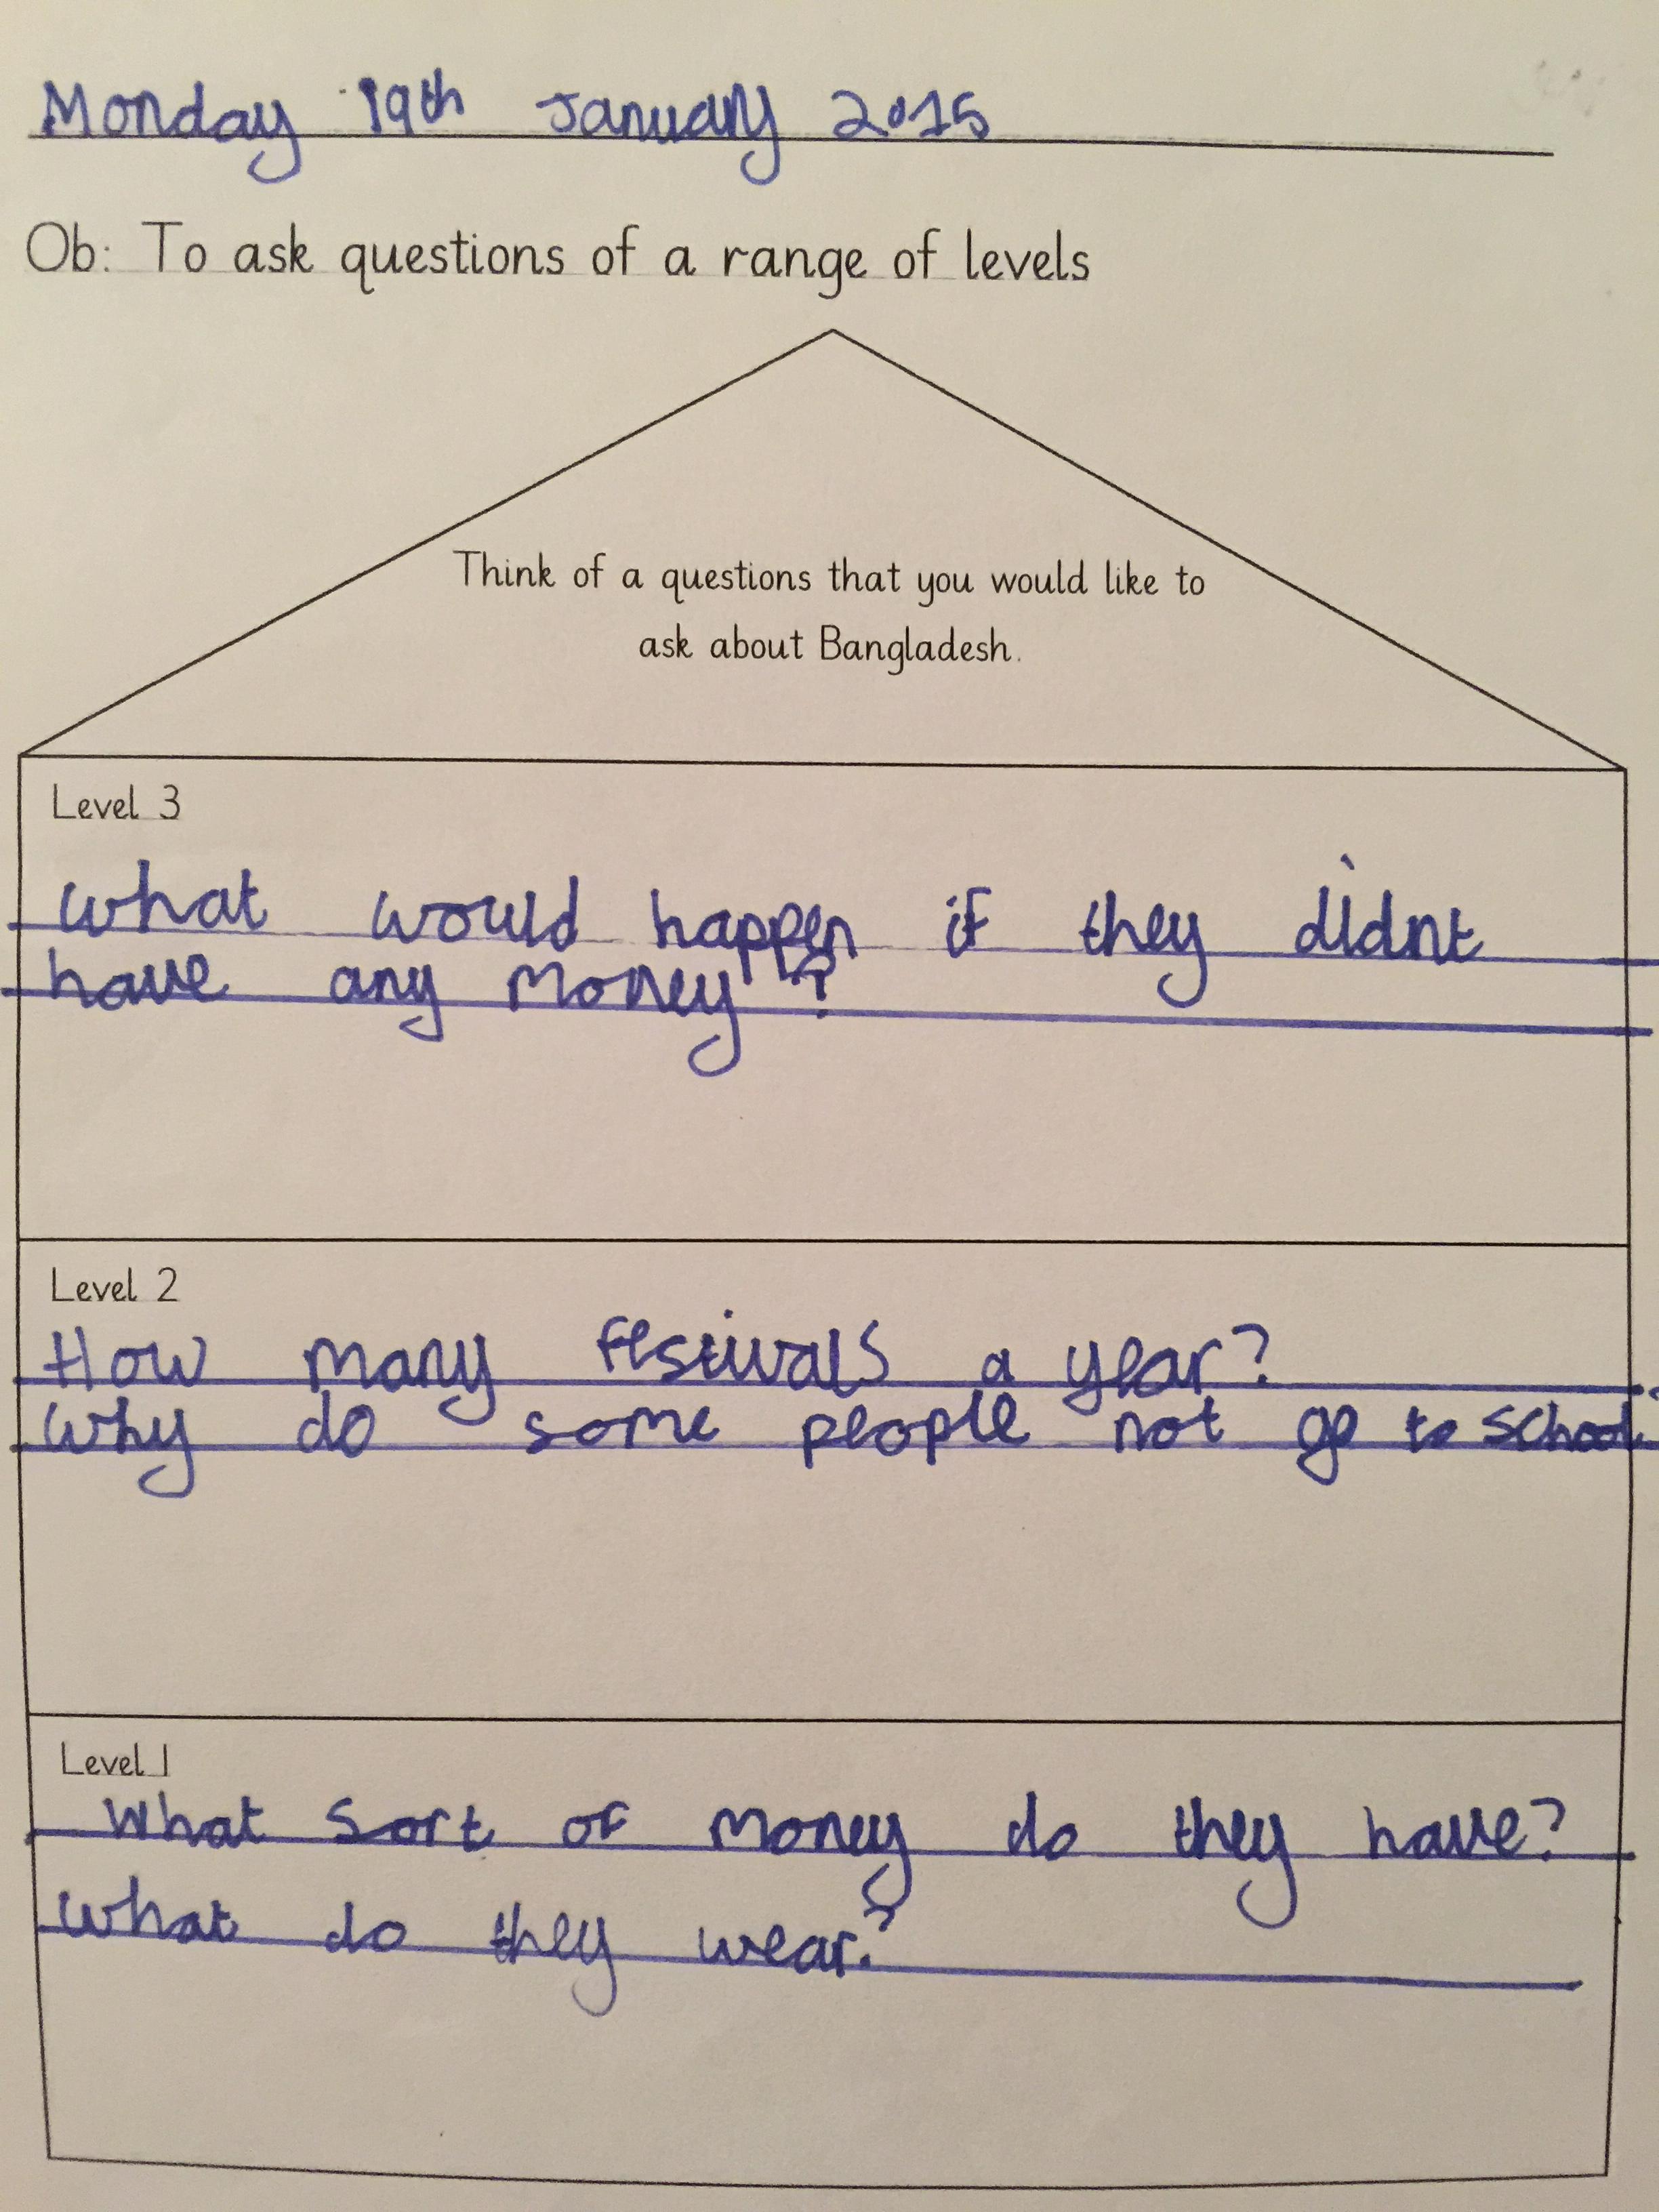 Monday 19th January 2015
Ob: To ask questions of a range of levels
Think of a questions that you would like to
ask about Bangladesh.
Level 3
what would happen if they didnt
have any money?
Level 2
How many festivals a year?
why do some people not go to school.
Level 1
What sort of money do they have?
what do they wear?